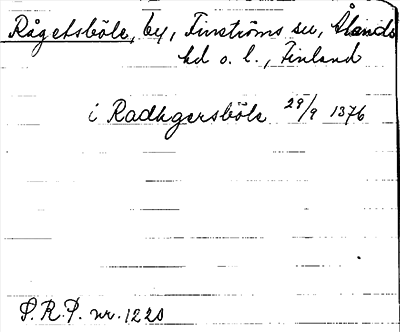 Rågetsböle, by, Finströms sn, Ålands
hd o. l., Finland
i Radhgersböle 29/9 1376
S.R.P. nr. 1220